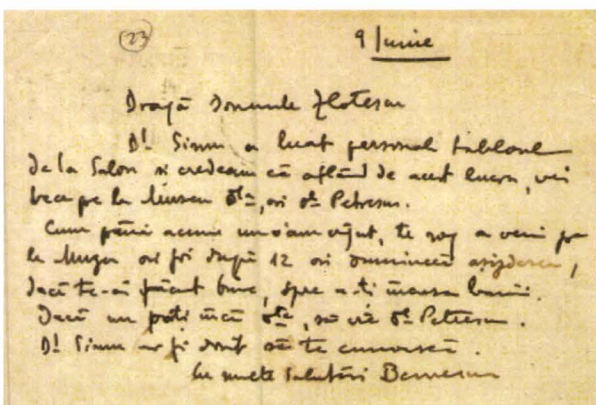 (23)
9 Iunie
Dragă Domnule Zlotescu
Dl. Simu a luat personal tabloul
de la Salon si credeam că aflând de acest lucru, vei
trece pe la Muzeu ori dl Petrescu.
Cum până acum nu v'am văzut, te rog a veni pe
la Muzeu ori joi după 12 ori duminecă
dacă te-ai făcut bine, spre a-ți încasa banii.
Dacă nu poți încă, să vie Dl Petrescu.
Dl. Simu ar fi dorit să te cunoască.
Cu multe Salutări